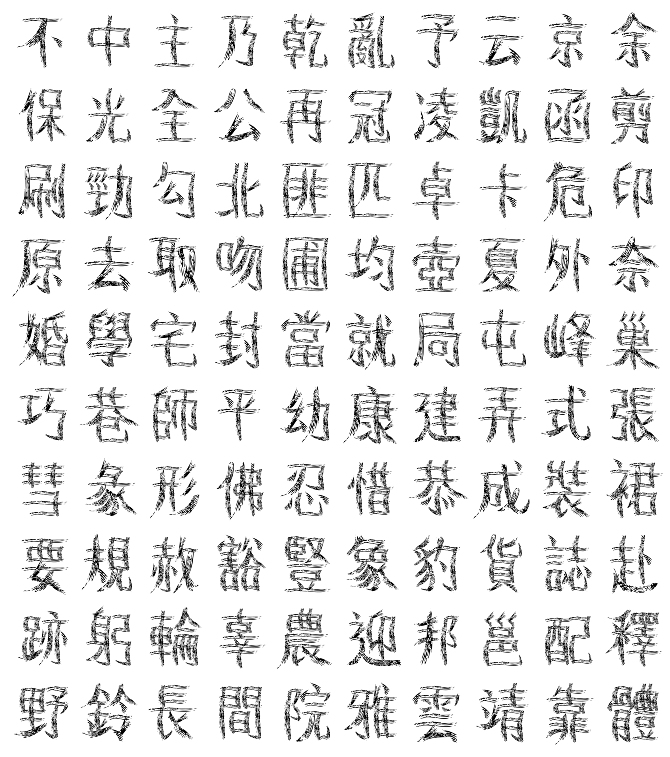 不中主乃乾亂予云京余
保光全公再冠凌凱函剪
刷勁勾北匪匹卓卡危印
原去取吻圃均壺夏外奈
婚學宅封當就局屯峰巢
巧巷師平幼康建弄式張
彗彖形佛忍惜恭成裝裙
要規赦豁豎象豹貨誌赴
跡躬輪辜農迎邦邕配釋
野鈴長間院雅雲靖靠體